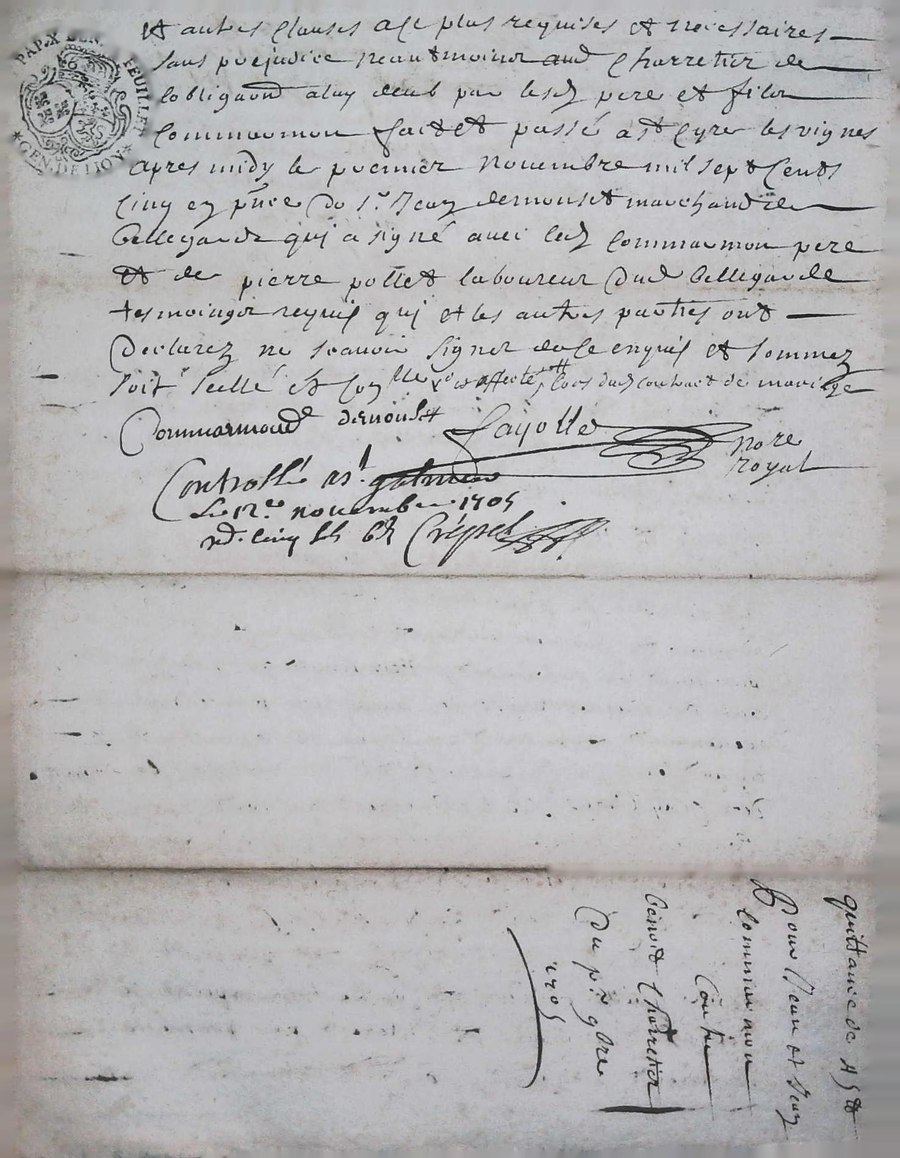 PAP.X FEUILLET
*GEN. DE LION*
et autres clauses a ce plus requises et necessaires
sans prejudice neantmoins aud Charretier de
lobligaõn a luy deub par lesd pere et filz
Commarmon fait et passé a st Cyre les vignes
apres midy le premier novembre mil sept cents
cinq en pñce de sr Jean demouset marchand de
bellegarde qui a signé avec led Commarmon pere
et de pierre pollet laboureur dud bellegarde
tesmoingz requis qui et les autres parties ont
declarez ne scavoir signer de ce enquis et sommez
soit scellé et affecté lors dud contract de mariage
Commarmond demouset fayolle nore
royal
Controllé a st galmier
Le 12e novembre 1705
rd. cinq ss 6d Crépet
quittance de
Pour Jean et Jean
Commarmon
Contre
benoit Charretier
Du pr 9bre
1705